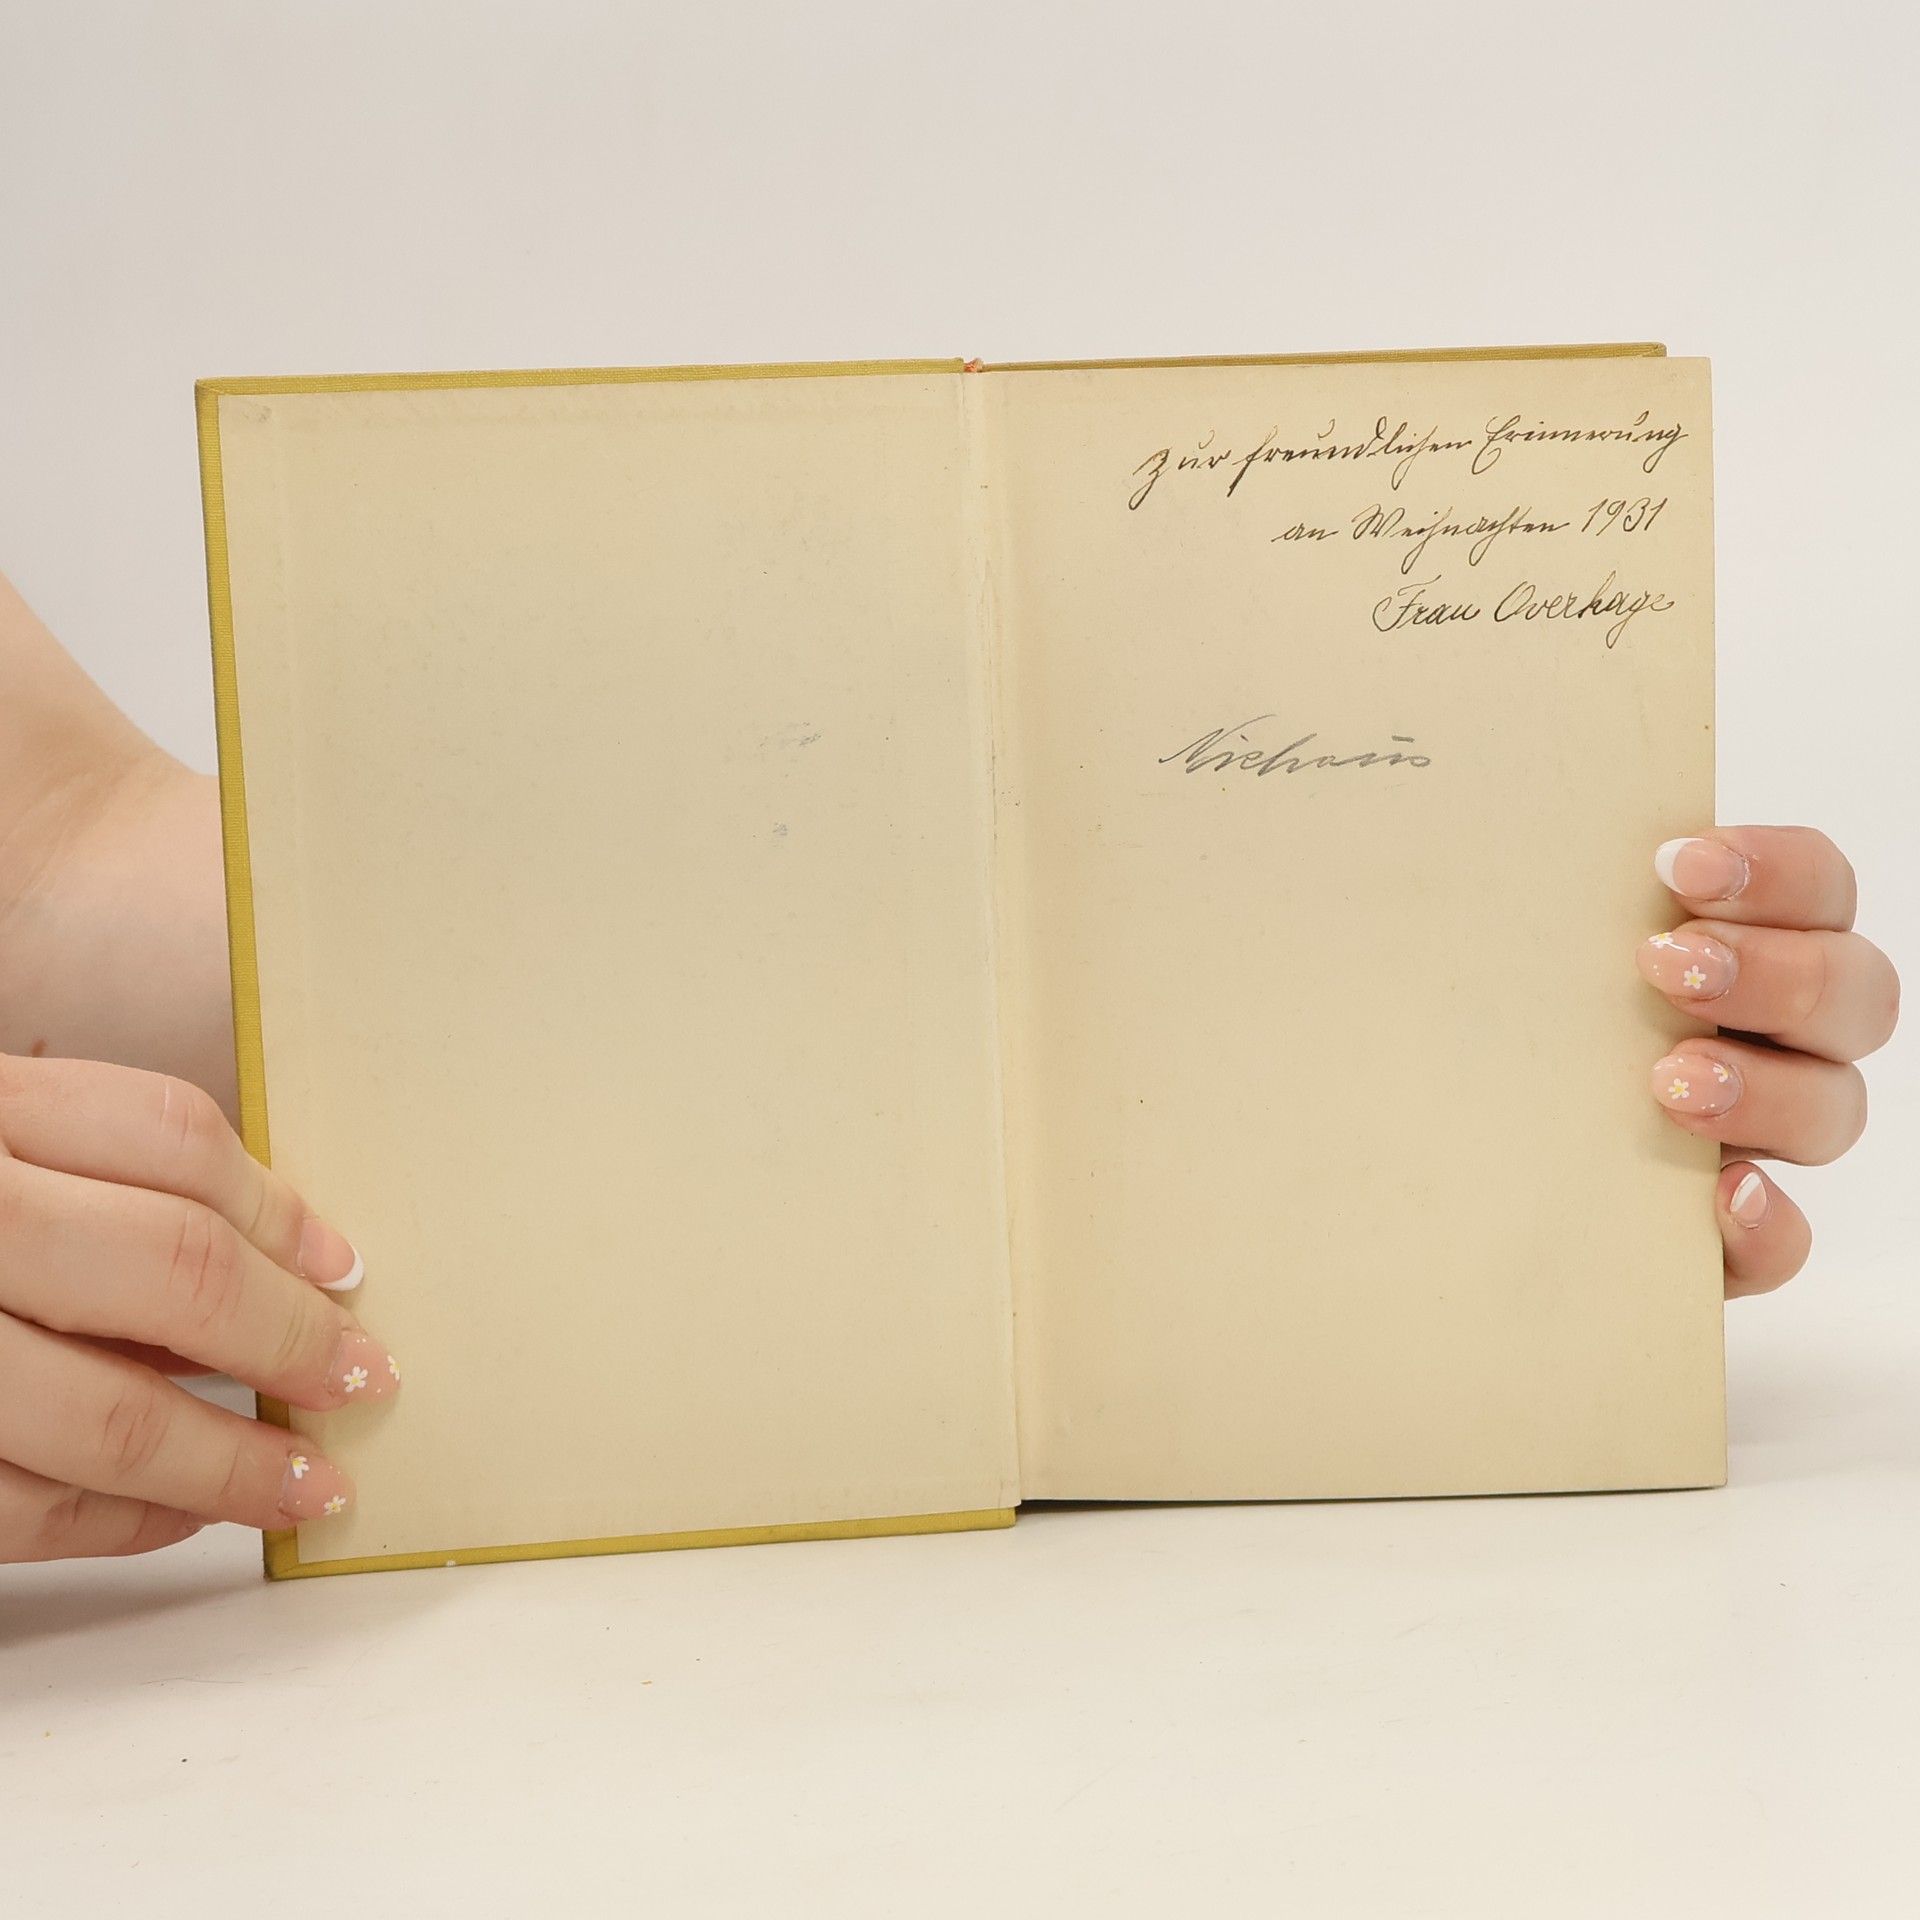 Zur freundlichen Erinnerung
an Weihnachten 1931
Frau Overhage
Niehaus